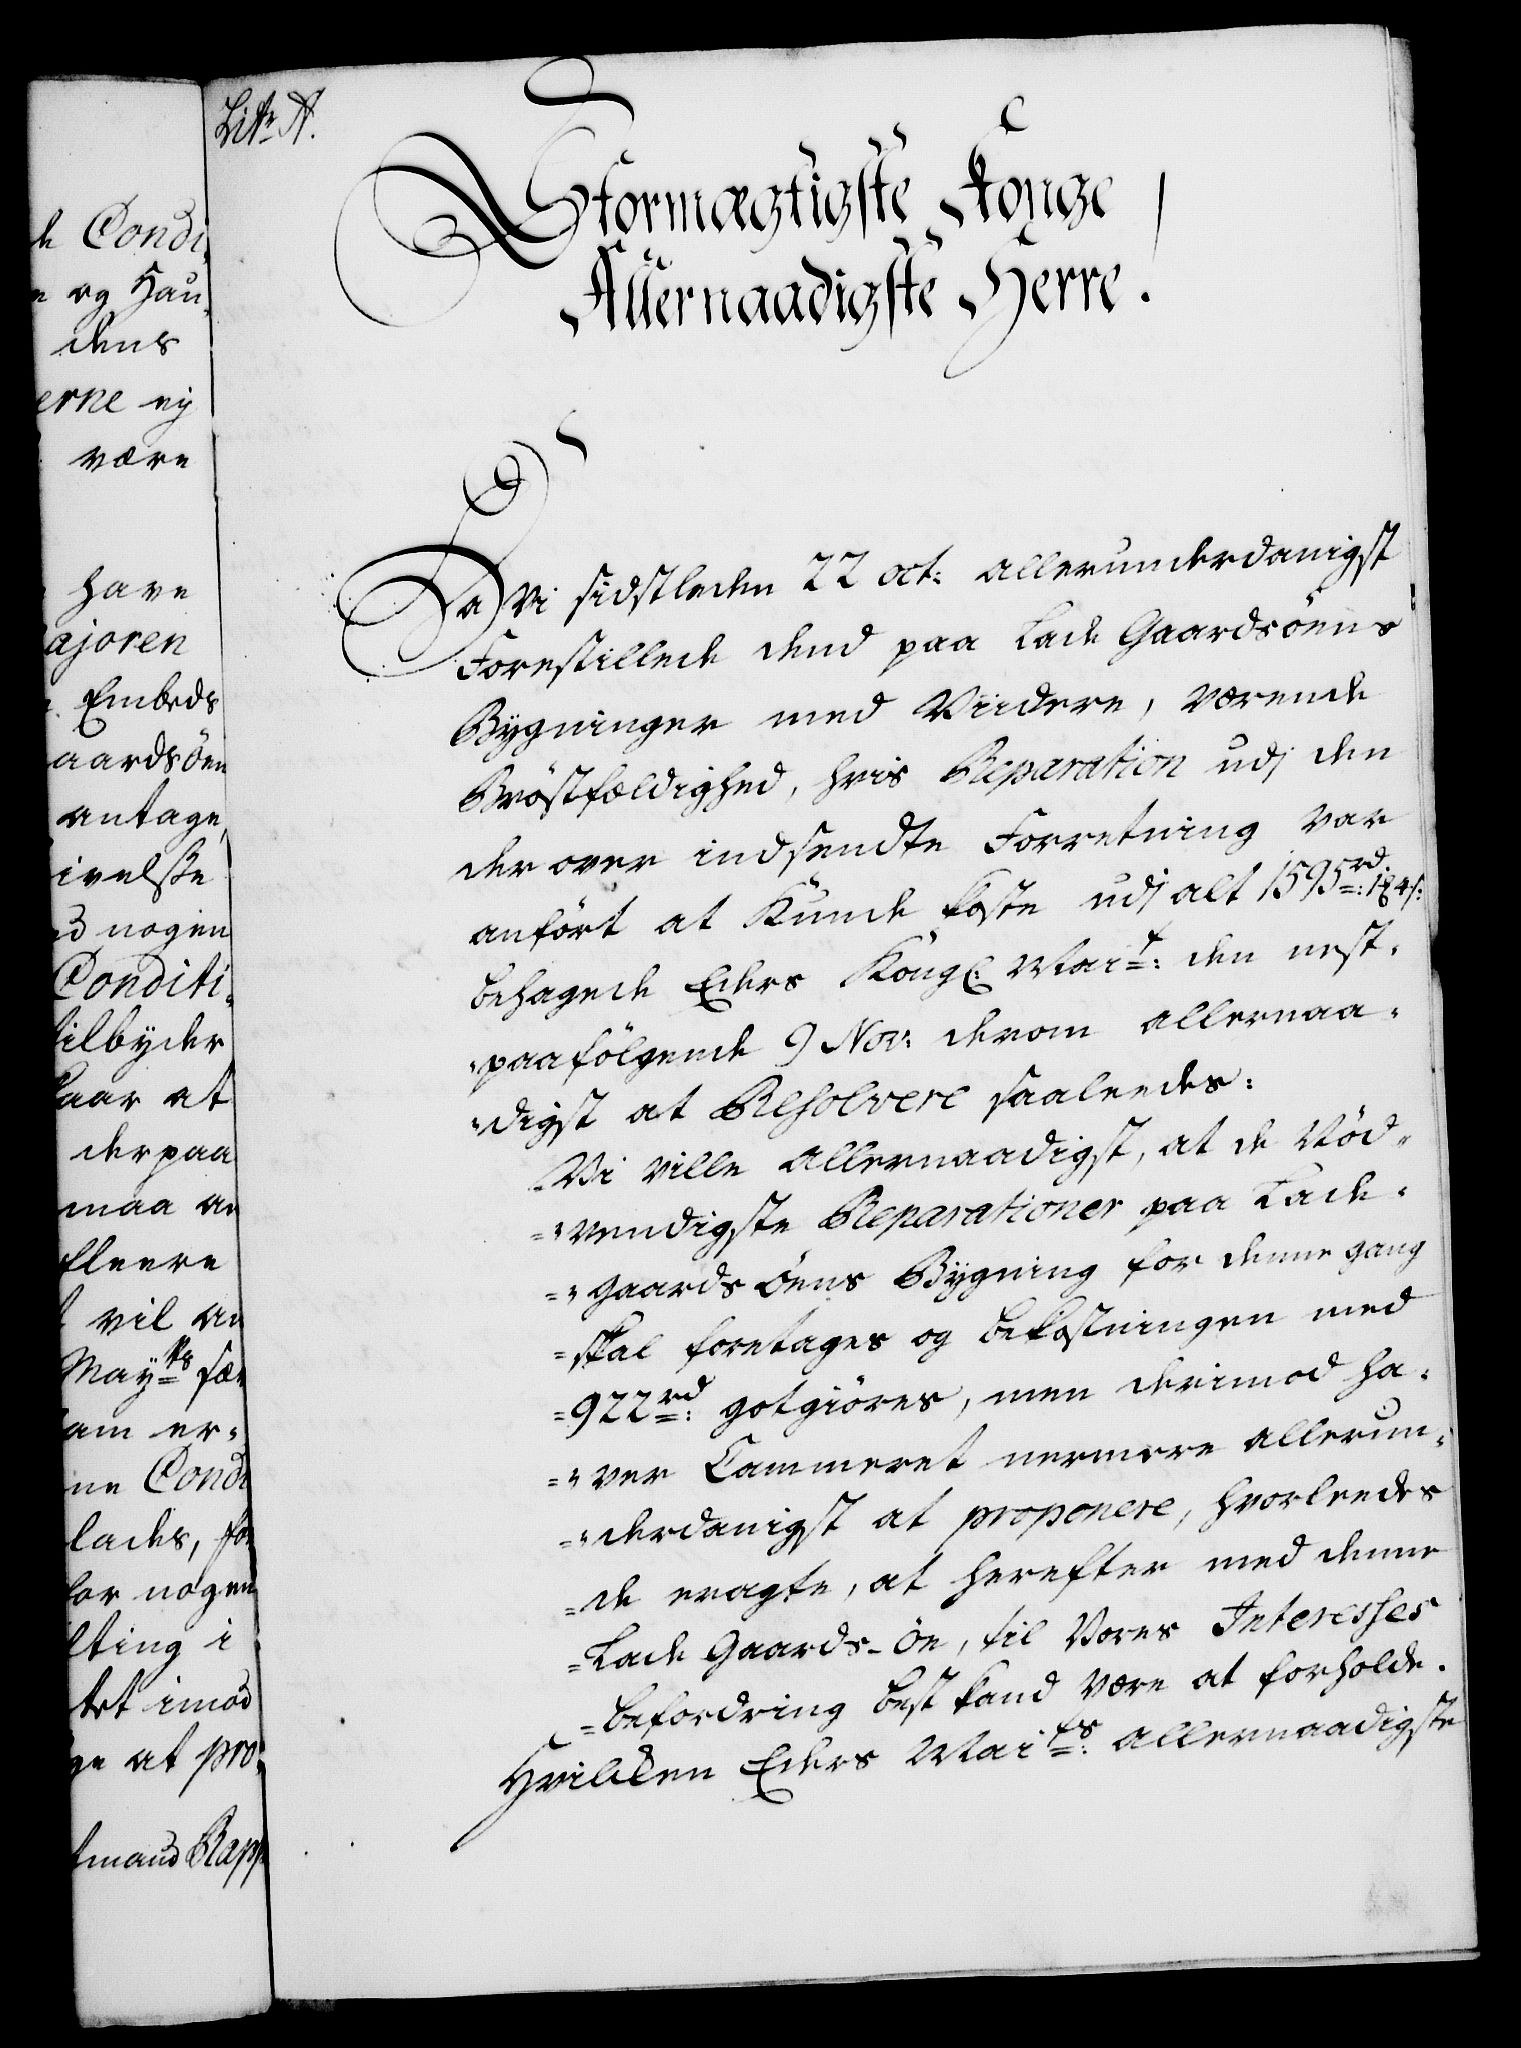 Litr A.
Stormægtigste Konge
Allernaadigste Herre!
Da Vi sidstleden 22 oct: allerunderdanigst
Forestillede dend paa Lade Gaardsöens
Bygninger med Viidere, værende
Bröstfældighed, hvis Reparation udj den
derover indsendte Forretning var
anfört at kunde koste udj alt 1595 rd:
behagede Eders Kongl: Mait: den nest-
paafölgende 9 Nov: derom allernaa-
digst at Resolvere saaleedes:
Vi ville allernaadigst, at de Nöd-
vendigste Reparationer paa Lade-
gaards Öens Bygning for denne gang
skal foretages og bekostningen med
922 rd: gotgiöres, men derimod ha-
ver Cammeret nermere allerun-
derdanigst at proponere, hvorleedes
de eragte, at herefter med denne
Lade Gaards-Öe, til Vores Interesses
befordring best kand være at forholde.
Hvilken Eders Maits: allernaadigste
de Condi-
og Hau-
dens
erne ey
være
have
ajoren
Embeds
aardsöen
antage
ivelsse
nogen
Conditi-
tilbyder
aar at
derpaa
maa an
fleere
vil an
Mayts
am er-
ne Condi
lades, for
for nogen
lting i
tet imod
ge at pro-
tmand Rapp